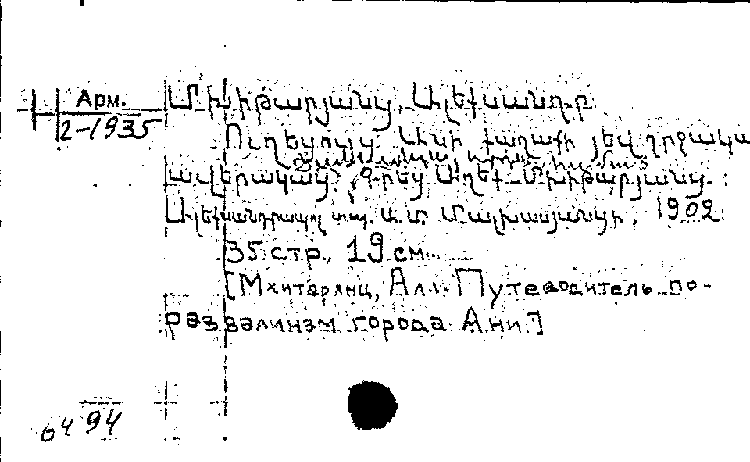 Арм.
2-1935
Մխիթարյանց, Ալեքսանդր
Ուղեցույց Անի քաղաքի յեվ շրջակա
ավերակաց
Մխիթարյանց
Ալեքսանդրապոլ տպ. 1902
35 стр., 19 см.
[Мхитарянц, Ал. Путеводитель по
развалинам города Ани.]
6494